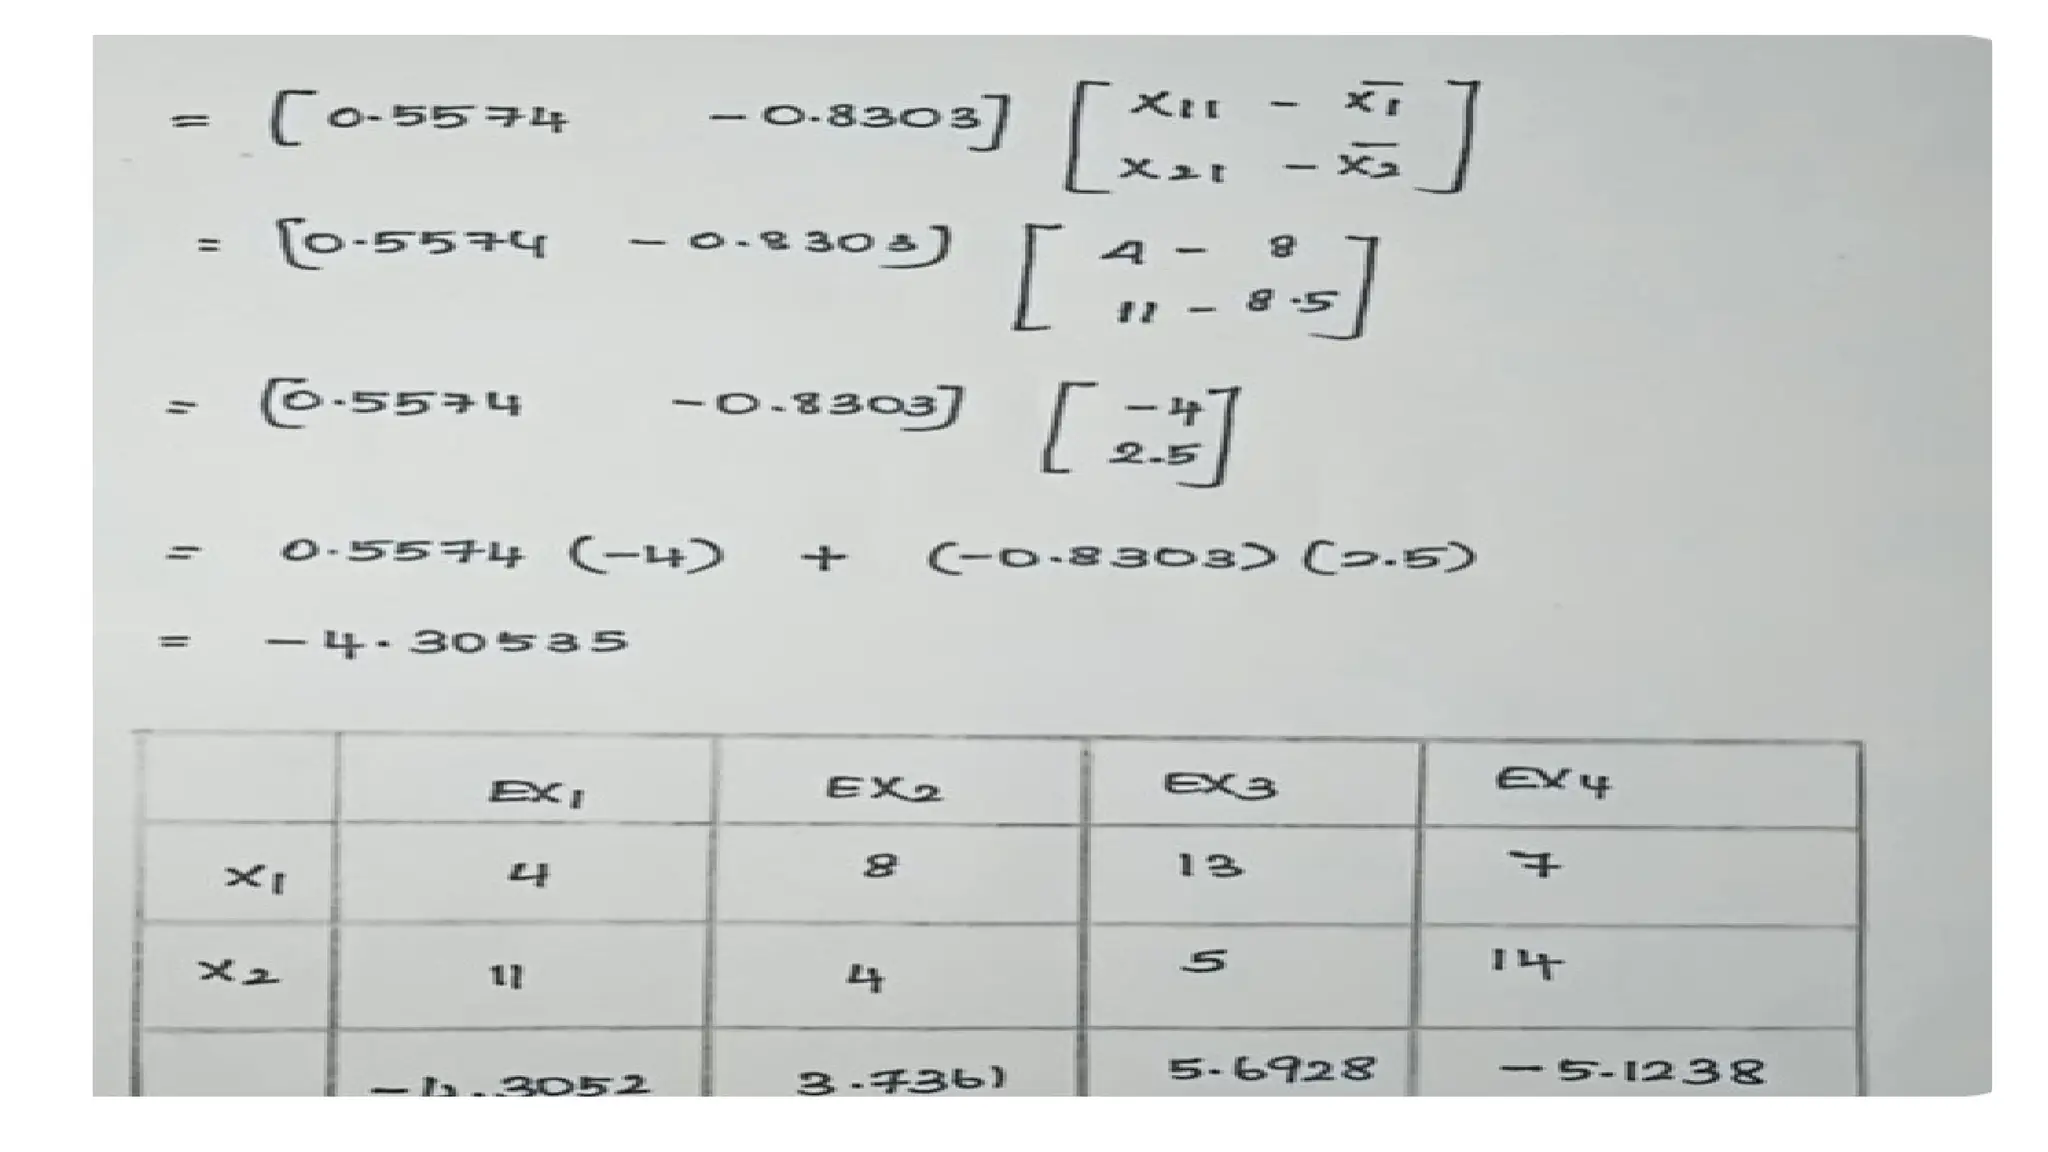 = [0.5574 -0.8303] [x11 - x̄1
x21 - x̄2]
= [0.5574 -0.8303] [4 - 8
11 - 8.5]
= [0.5574 -0.8303] [-4
2.5]
= 0.5574 (-4) + (-0.8303) (2.5)
= -4.30535
EX1 EX2 EX3 EX4
X1 4 8 13 7
X2 11 4 5 14
-4.3052 3.7361 5.6928 -5.1238